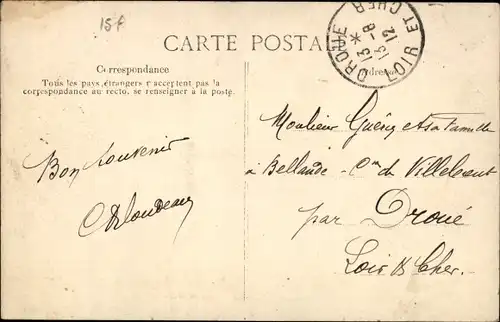 15f
CARTE POSTALE
DROUÉ * LOIR ET CHER
13 -8
13 12
Correspondance
Adresse
Tous les pays étrangers n'acceptent pas la
correspondance au recto. se renseigner à la poste.
Bon souvenir
Monsieur Guérin et sa famille
à Bellande - Cne de
par Droué
Loir & Cher.